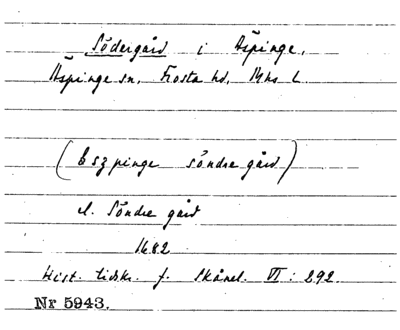 Södergård i Äspinge,
Äspinge sn, Frosta hd, Mhs l.
(Eszpinge söndre gård)
el. Söndre gård
1682
Hist. tidskr. f. Skånel. VI: 292.
Nr 5943.